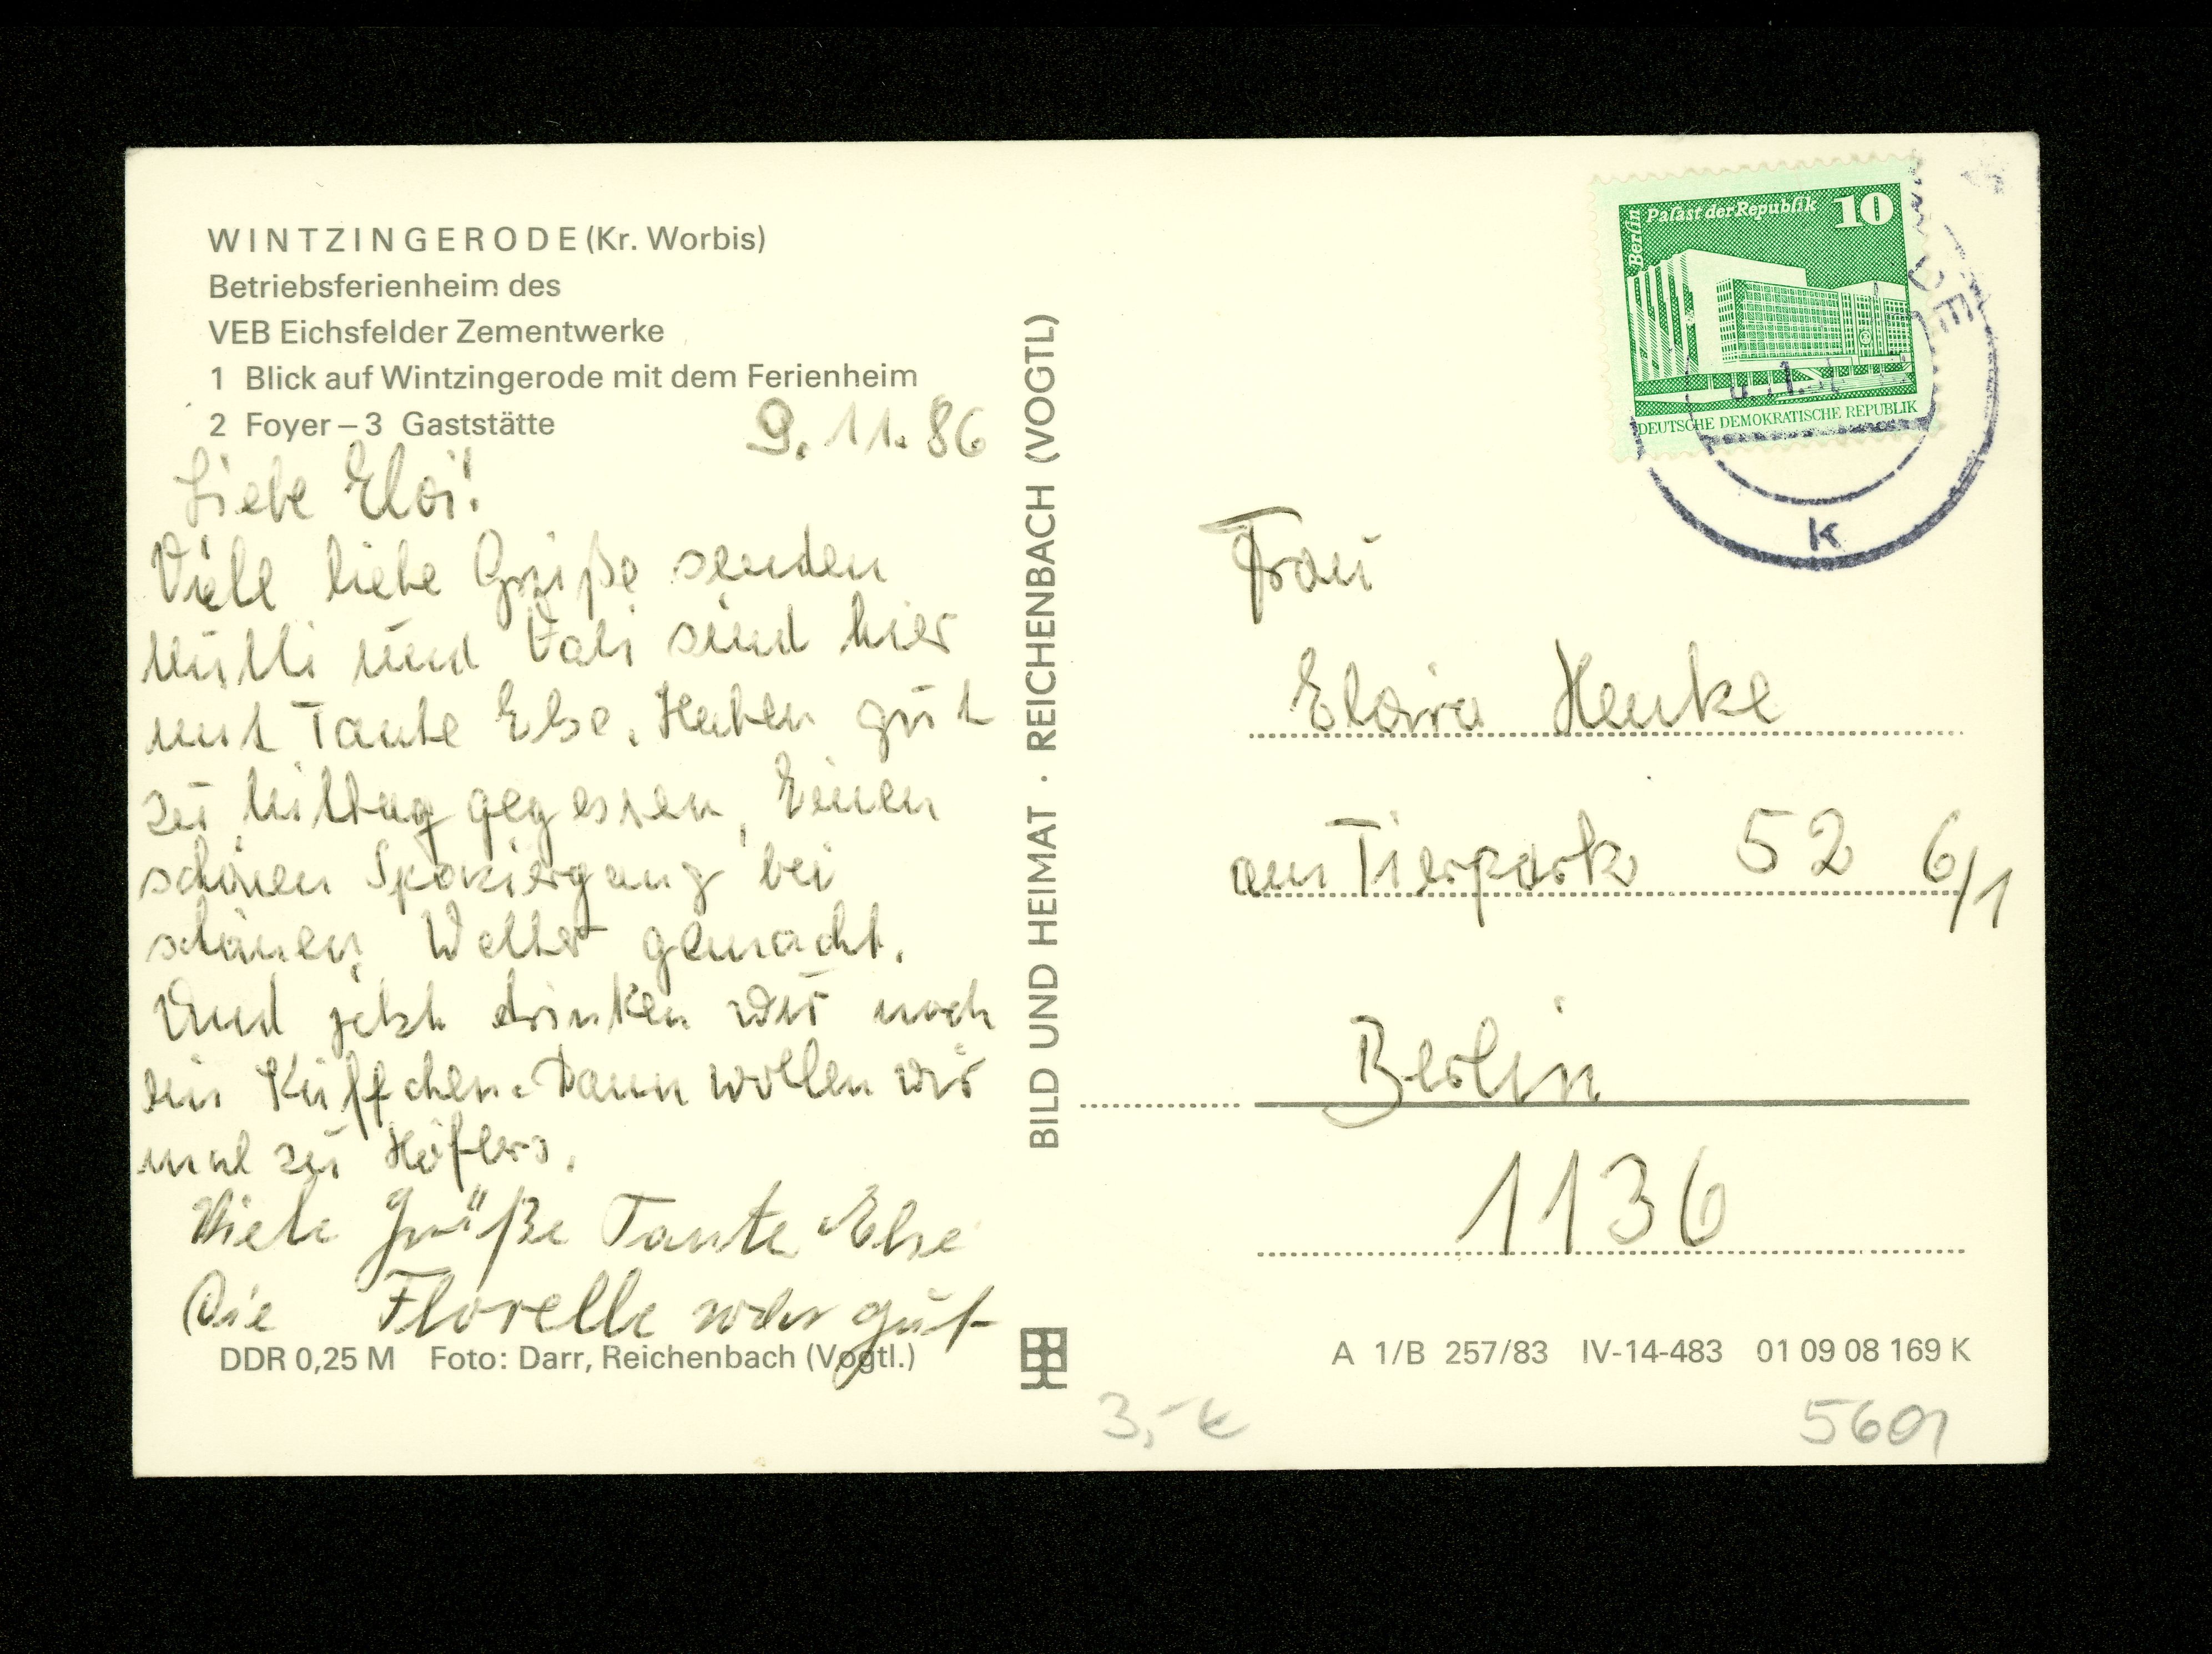 WINTZINGERODE (Kr. Worbis)
Betriebsferienheim des
VEB Eichsfelder Zementwerke
1 Blick auf Wintzingerode mit dem Ferienheim
2 Foyer – 3 Gaststätte
9.11.86
Liebe
Viele liebe Grüße senden
Mutti und Vati sind hier
mit Tante Else. Haben gut
zu Mittag gegessen, Einen
schönen Spaziergang bei
schönen Wetter gemacht.
Und jetzt trinken wir noch
ein Käffchen. Dann wollen wir
mal zu
Viele Grüße Tante Else
Die Florelle gut
DDR 0,25 M Foto: Darr, Reichenbach (Vogtl.)
BILD UND HEIMAT · REICHENBACH (VOGTL)
Berlin
Palast der Republik 10
DEUTSCHE DEMOKRATISCHE REPUBLIK
K
Frau
Henke
am Tierpark 52 6/1
Berlin
1136
A 1/B 257/83 IV-14-483 01 09 08 169 K
3,- €
5601